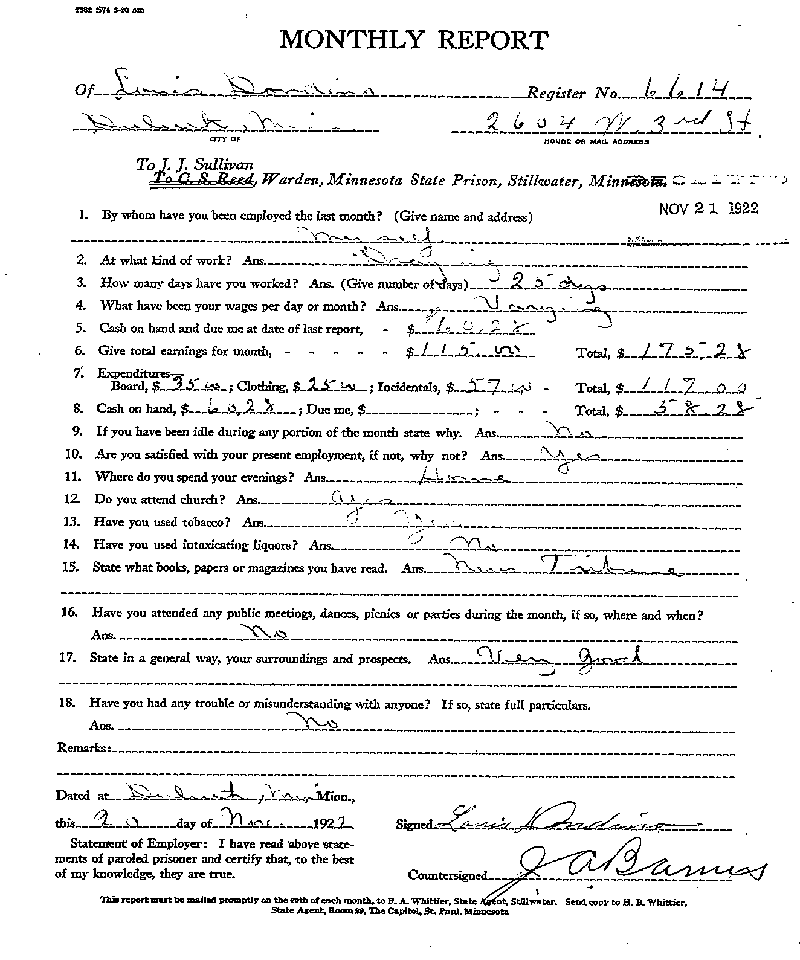 MONTHLY REPORT
Of Louis Dondino Register No. 6614
Duluth, Minn 2604 W. 3rd St
CITY OF HOUSE OR MAIL ADDRESS
To J. J. Sullivan
To C. S. Reed, Warden, Minnesota State Prison, Stillwater, Minnesota.
NOV 21 1922
1. By whom have you been employed the last month? (Give name and address)
My self
2. At what kind of work? Ans. Draying
3. How many days have you worked? Ans. (Give number of days) 25 days
4. What have been your wages per day or month? Ans. Varying
5. Cash on hand and due me at date of last report, - $ 60.28
6. Give total earnings for month, - - - - - $ 115.00 Total, $ 175 28
7. Expenditures—
Board, $ 35.00; Clothing, $ 25.00; Incidentals, $ 57.00 - Total, $ 117 00
8. Cash on hand, $ 60 28; Due me, $ ; - - - Total, $ 58 28
9. If you have been idle during any portion of the month state why. Ans. No
10. Are you satisfied with your present employment, if not, why not? Ans. Yes
11. Where do you spend your evenings? Ans. Home
12. Do you attend church? Ans. Yes
13. Have you used tobacco? Ans. Yes
14. Have you used intoxicating liquors? Ans. No
15. State what books, papers or magazines you have read. Ans. News Tribune
16. Have you attended any public meetings, dances, picnics or parties during the month, if so, where and when?
Ans. No
17. State in a general way, your surroundings and prospects. Ans. Very good
18. Have you had any trouble or misunderstanding with anyone? If so, state full particulars.
Ans. No
Remarks:
Dated at Duluth, Minn.,
this 20 day of Nov. 1922 Signed Louis Dondino
Statement of Employer: I have read above state-
ments of paroled prisoner and certify that, to the best
of my knowledge, they are true. Countersigned J A Barnes
This report must be mailed promptly on the 20th of each month, to F. A. Whittier, State Agent, Stillwater. Send copy to H. B. Whittier,
State Agent, Room 99, The Capitol, St. Paul, Minnesota